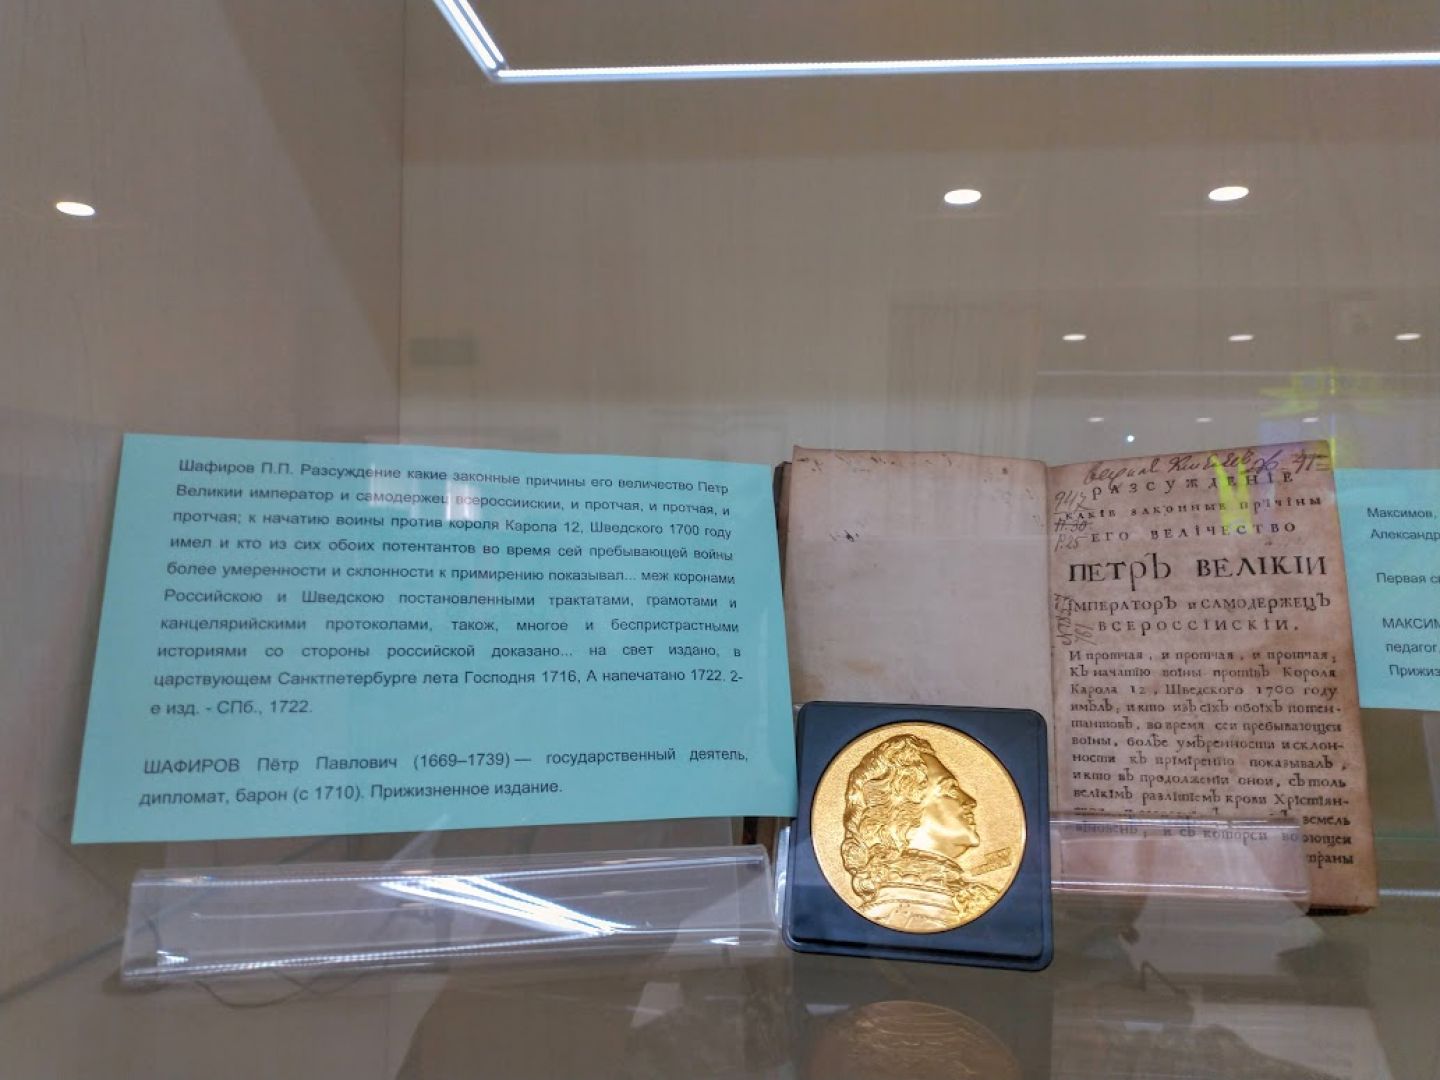 Шафиров П.П. Разсуждение какие законные причины его величество Петр
Великии император и самодержец всероссииский, и протчая, и протчая, и
протчая; к начатию воины против короля Карола 12, Шведского 1700 году
имел и кто из сих обоих потентантов во время сей пребывающей войны
более умеренности и склонности к примирению показывал... меж коронами
Российскою и Шведскою постановленными трактатами, грамотами и
канцелярийскими протоколами, також, многое и беспристрастными
историями со стороны российской доказано... на свет издано, в
царствующем Санктпетербурге лета Господня 1716, А напечатано 1722. 2-
е изд. - СПб., 1722.
ШАФИРОВ Пётр Павлович (1669–1739) — государственный деятель,
дипломат, барон (с 1710). Прижизненное издание.
РАЗСУЖДЕНІЕ
КАКІЕ ЗАКОННЫЕ ПРІЧІНЫ
ЕГО ВЕЛІЧЕСТВО
ПЕТРЪ ВЕЛІКІИ
ІМПЕРАТОРЪ и САМОДЕРЖЕЦЪ
ВСЕРОССІИСКІИ.
И протчая, и протчая, и протчая,
Къ начатію воіны протівъ Короля
Карола 12, Шведского 1700 году
имѣлъ, и кто изъ сіхъ обоіхъ потен-
тантовъ, во время сеи пребывающеи
воіны, болѣе умѣренности и склон-
ности къ прімірению показывалъ,
и кто въ продолженіи онои, съ толь
велікімъ разлітіемъ крови Хрістіян-
земель
віновенъ, и съ которои воюющеи
страны
Максимов,
Александр
Первая
МАКСИМ
педагог,
Прижиз